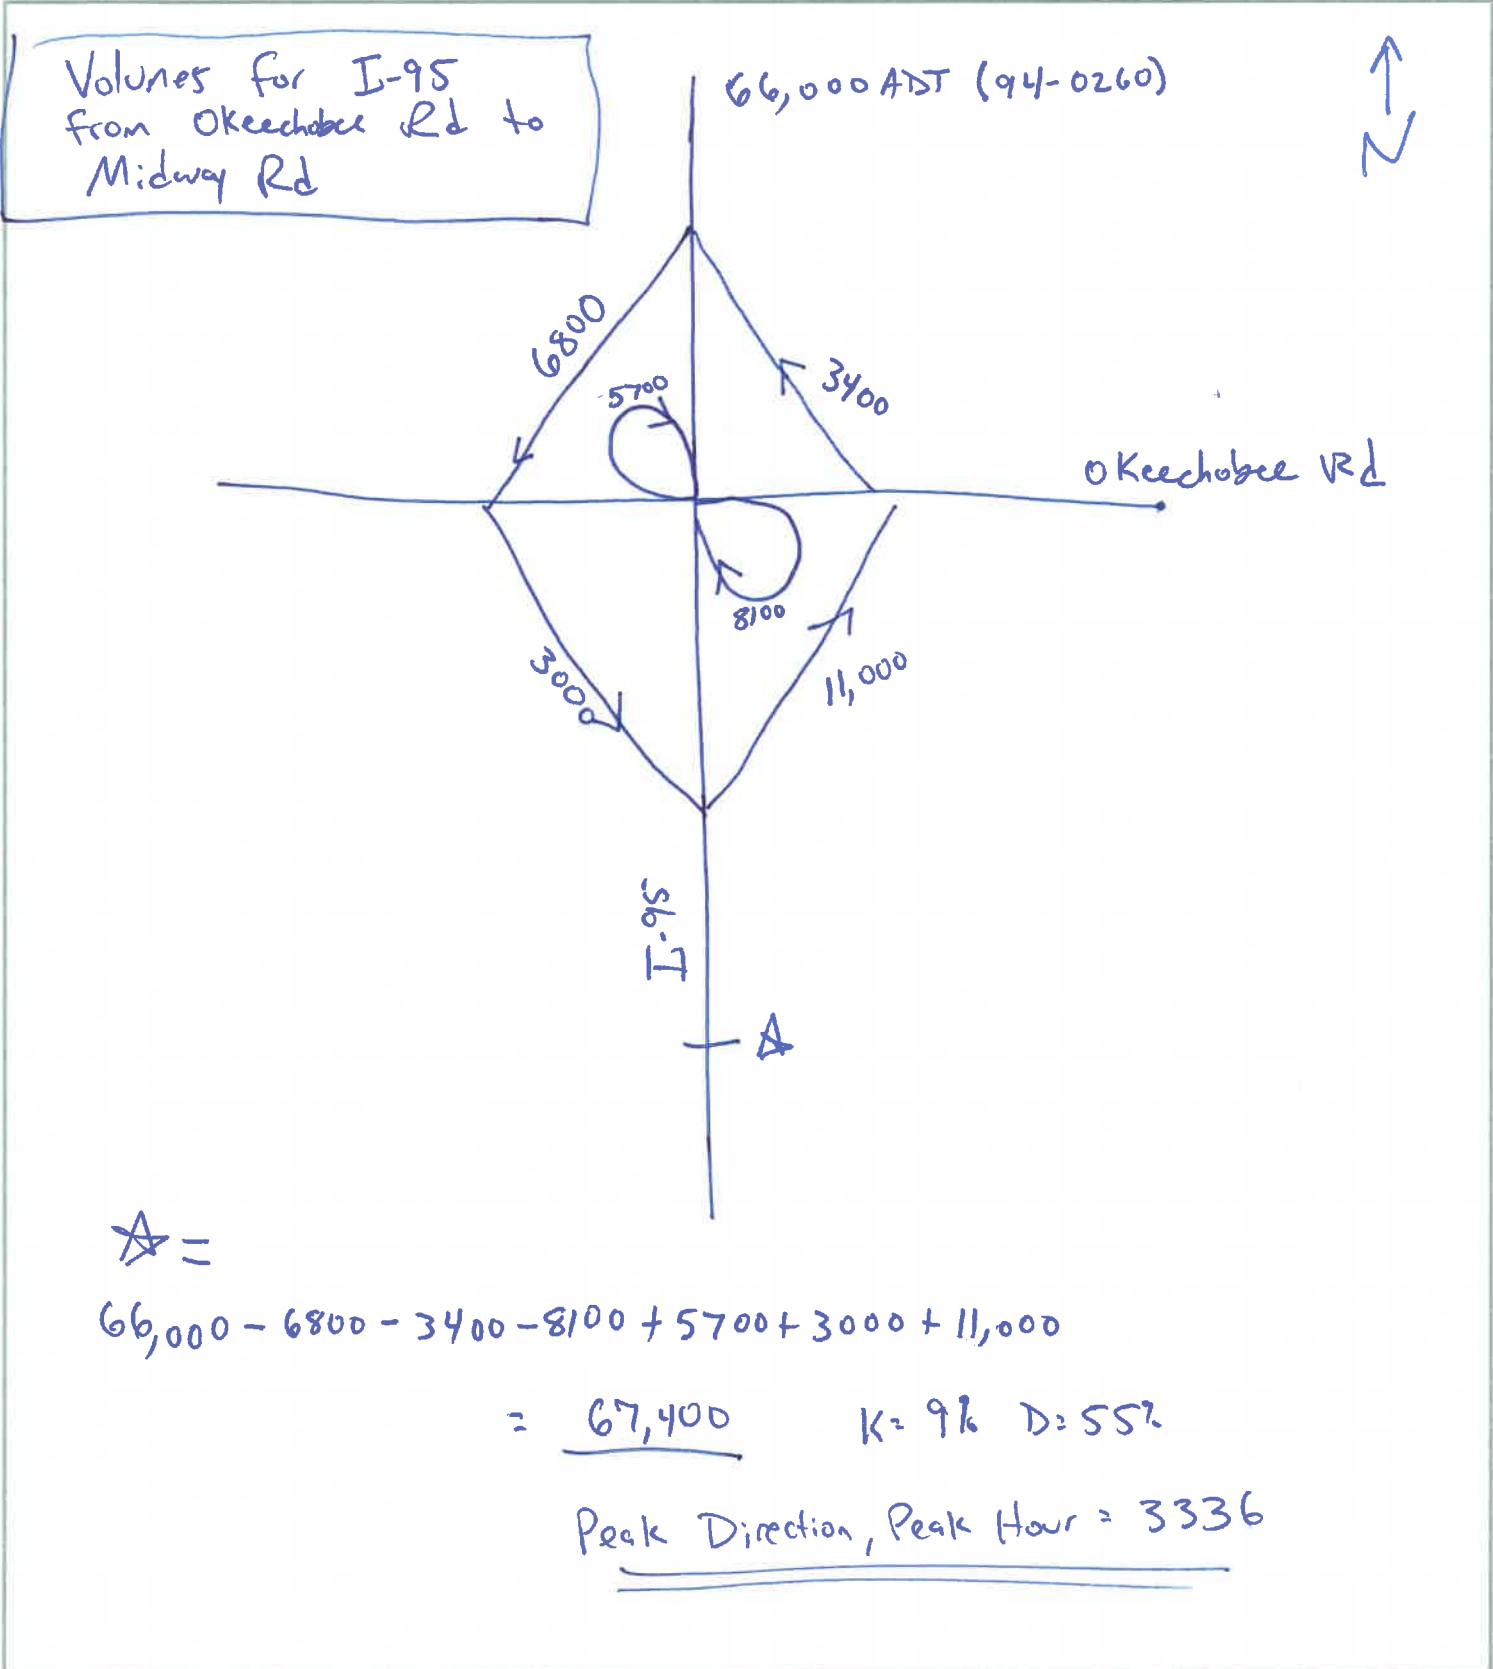 Volumes for I-95
from Okeechobee Rd to
Midway Rd
66,000 ADT (94-0260)
N
6800
5700
3400
Okeechobee Rd
8100
3000
11,000
I-95
☆
☆ =
66,000 - 6800 - 3400 - 8100 + 5700 + 3000 + 11,000
= 67,400 K= 9% D= 55%
Peak Direction, Peak Hour = 3336